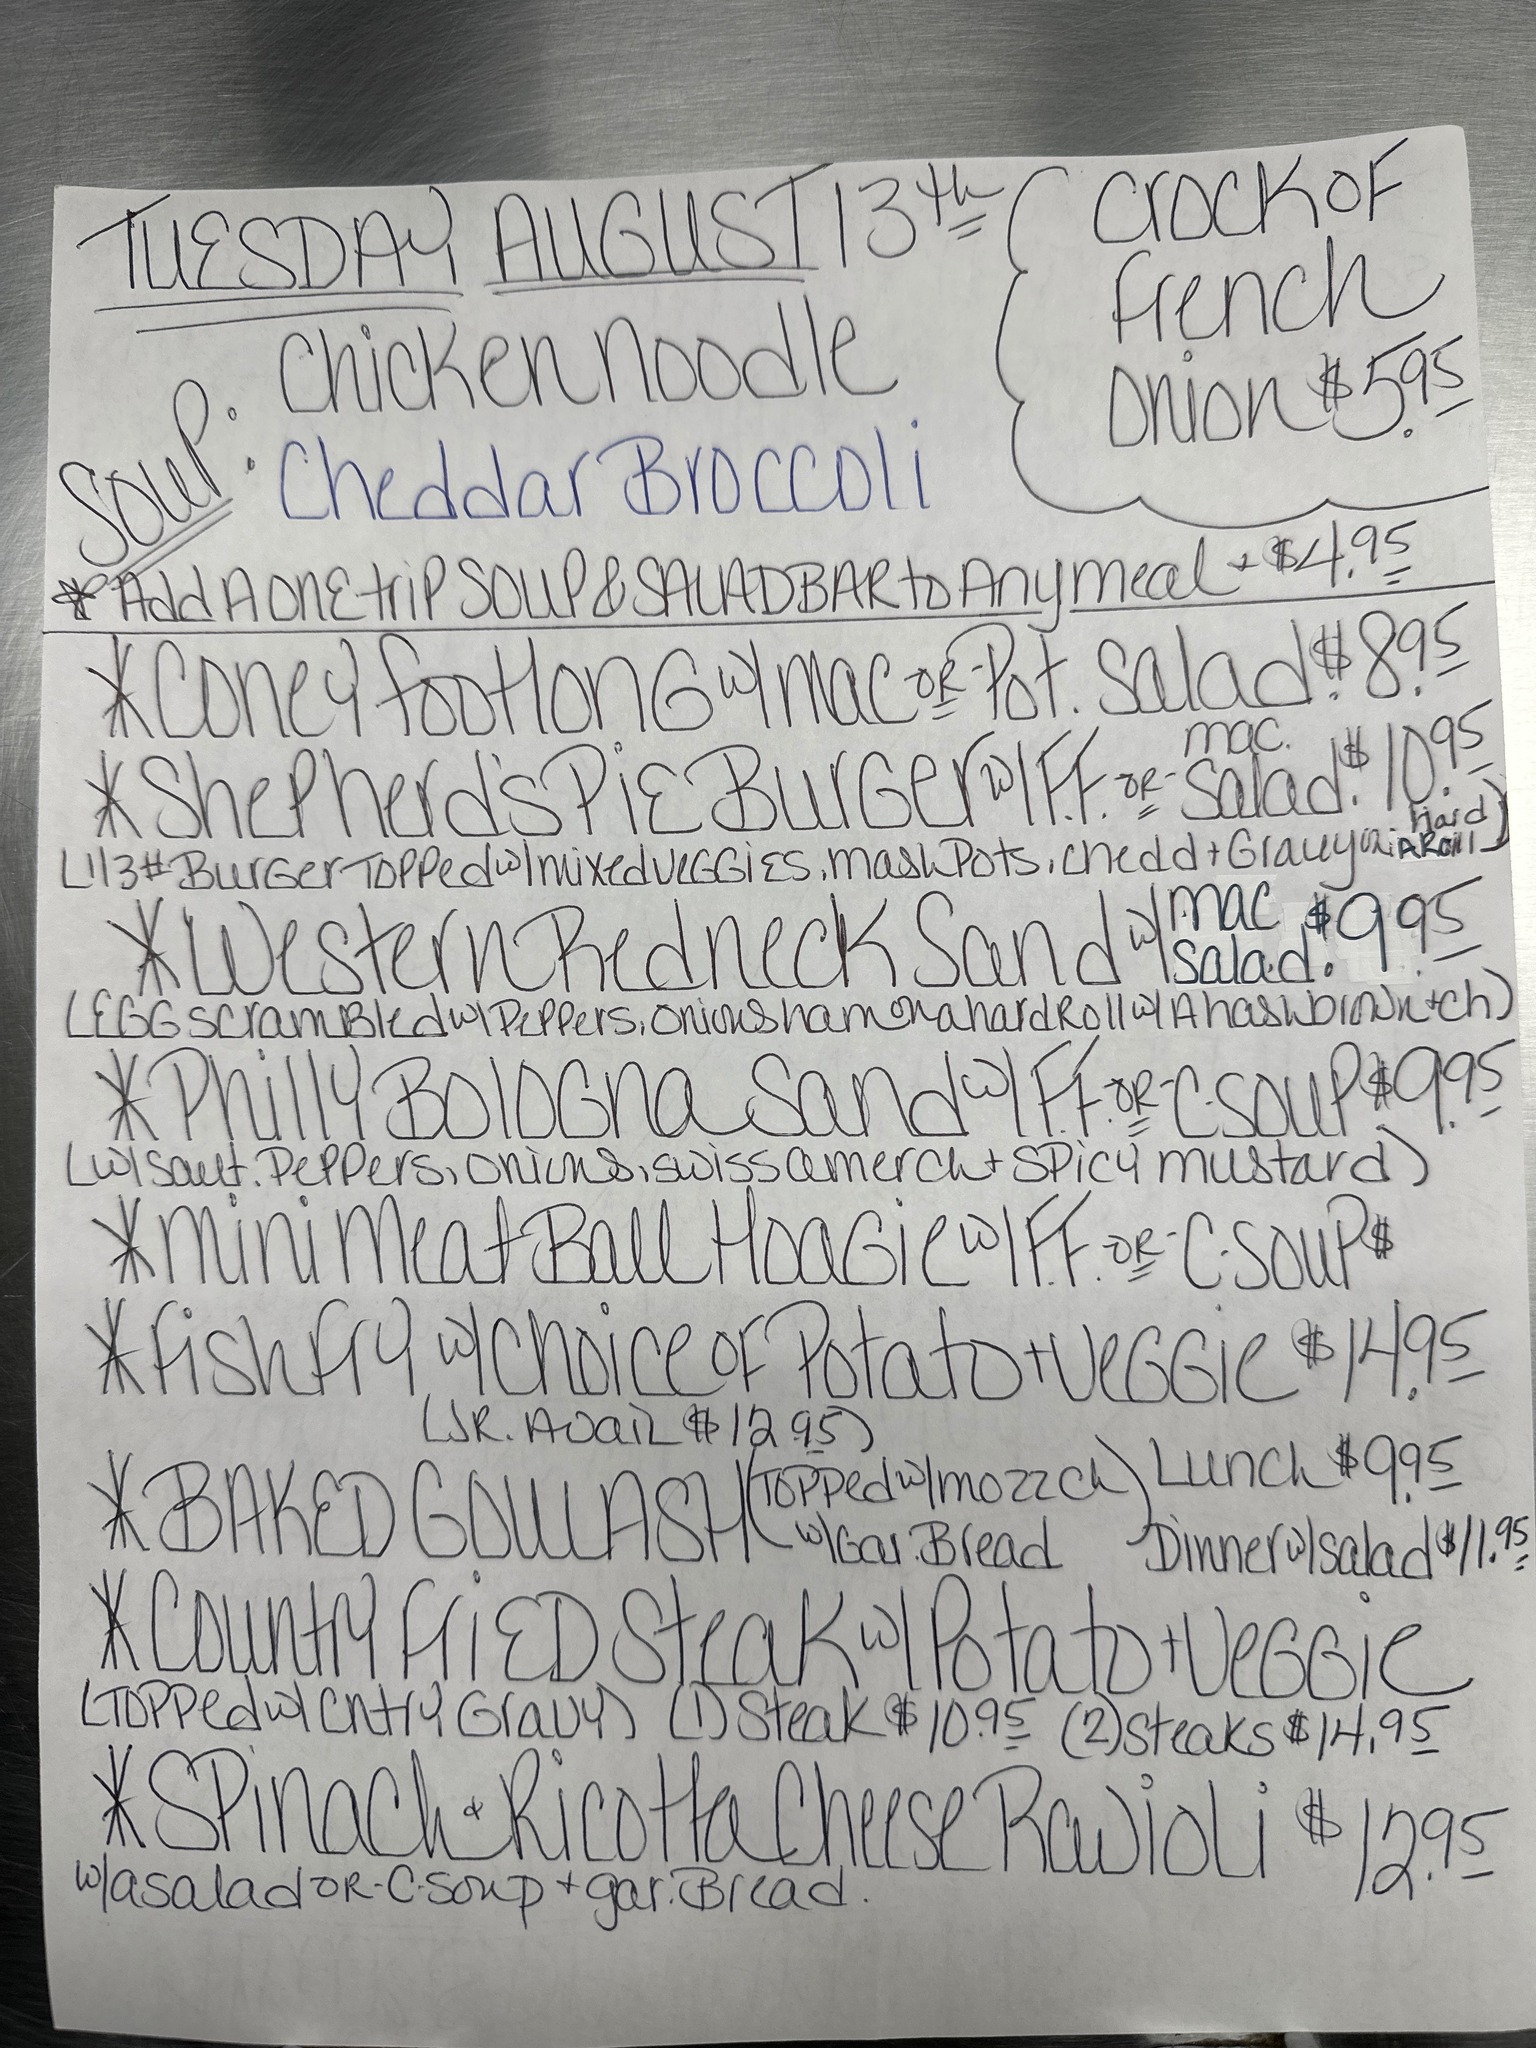 TUESDAY AUGUST 13th
Crock of
French
Onion $5.95
Soup:
Chicken Noodle
Cheddar Broccoli
* Add A one trip SOUP & SALAD BAR to Any meal + $4.95
* Coney Footlong w/ mac -OR- Pot. Salad $8.95
* Shepherd's Pie Burger w/ F.F. -OR- mac. Salad. $10.95
(1/3# Burger Topped w/ mixed veggies, mash Pots, chedd + Gravy on A Hard Roll)
* Western Redneck Sand w/ mac salad. $9.95
(EGG scrambled w/ Peppers, onions ham on a hard Roll w/ A hashbrown + ch)
* Philly Bologna Sand w/ F.F. -OR- C-SOUP $9.95
(w/ saut. Peppers, onions, swiss amer ch + spicy mustard)
* Mini Meat Ball Hoagie w/ F.F. -OR- C-SOUP $
* Fish Fry w/ choice of Potato + Veggie $14.95
(JR. Avail $12.95)
* BAKED GOULASH (Topped w/ mozz ch) Lunch $9.95
w/ Gar. Bread Dinner w/ salad $11.95
* Country Fried Steak w/ Potato + Veggie
(Topped w/ Cntry Gravy) (1) Steak $10.95 (2) steaks $14.95
* Spinach + Ricotta Cheese Ravioli $12.95
w/ a salad -OR- C-soup + gar. Bread.